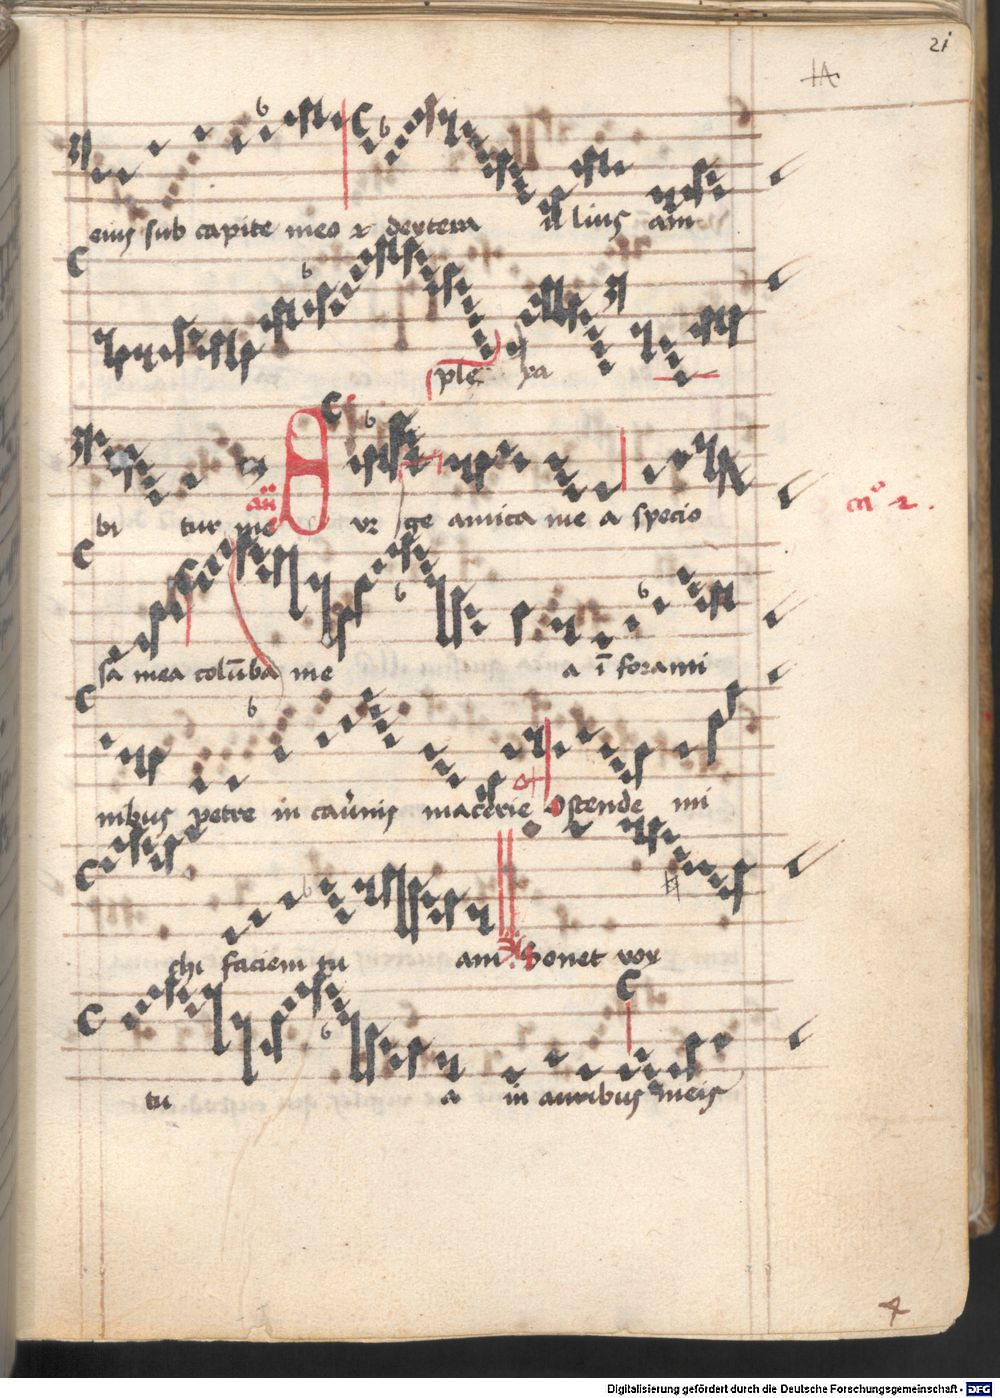 21
eius sub capite meo ⁊ dextera il lius am
ple xa
bi tur me añ Sur ge amica me a specio
sa mea colūba me a ī forami
nibus petre in cauernis macerie Ostende mi
chi faciem tu am Sonet vox
tu a in auribus meis
4
Digitalisierung gefördert durch die Deutsche Forschungsgemeinschaft - DFG